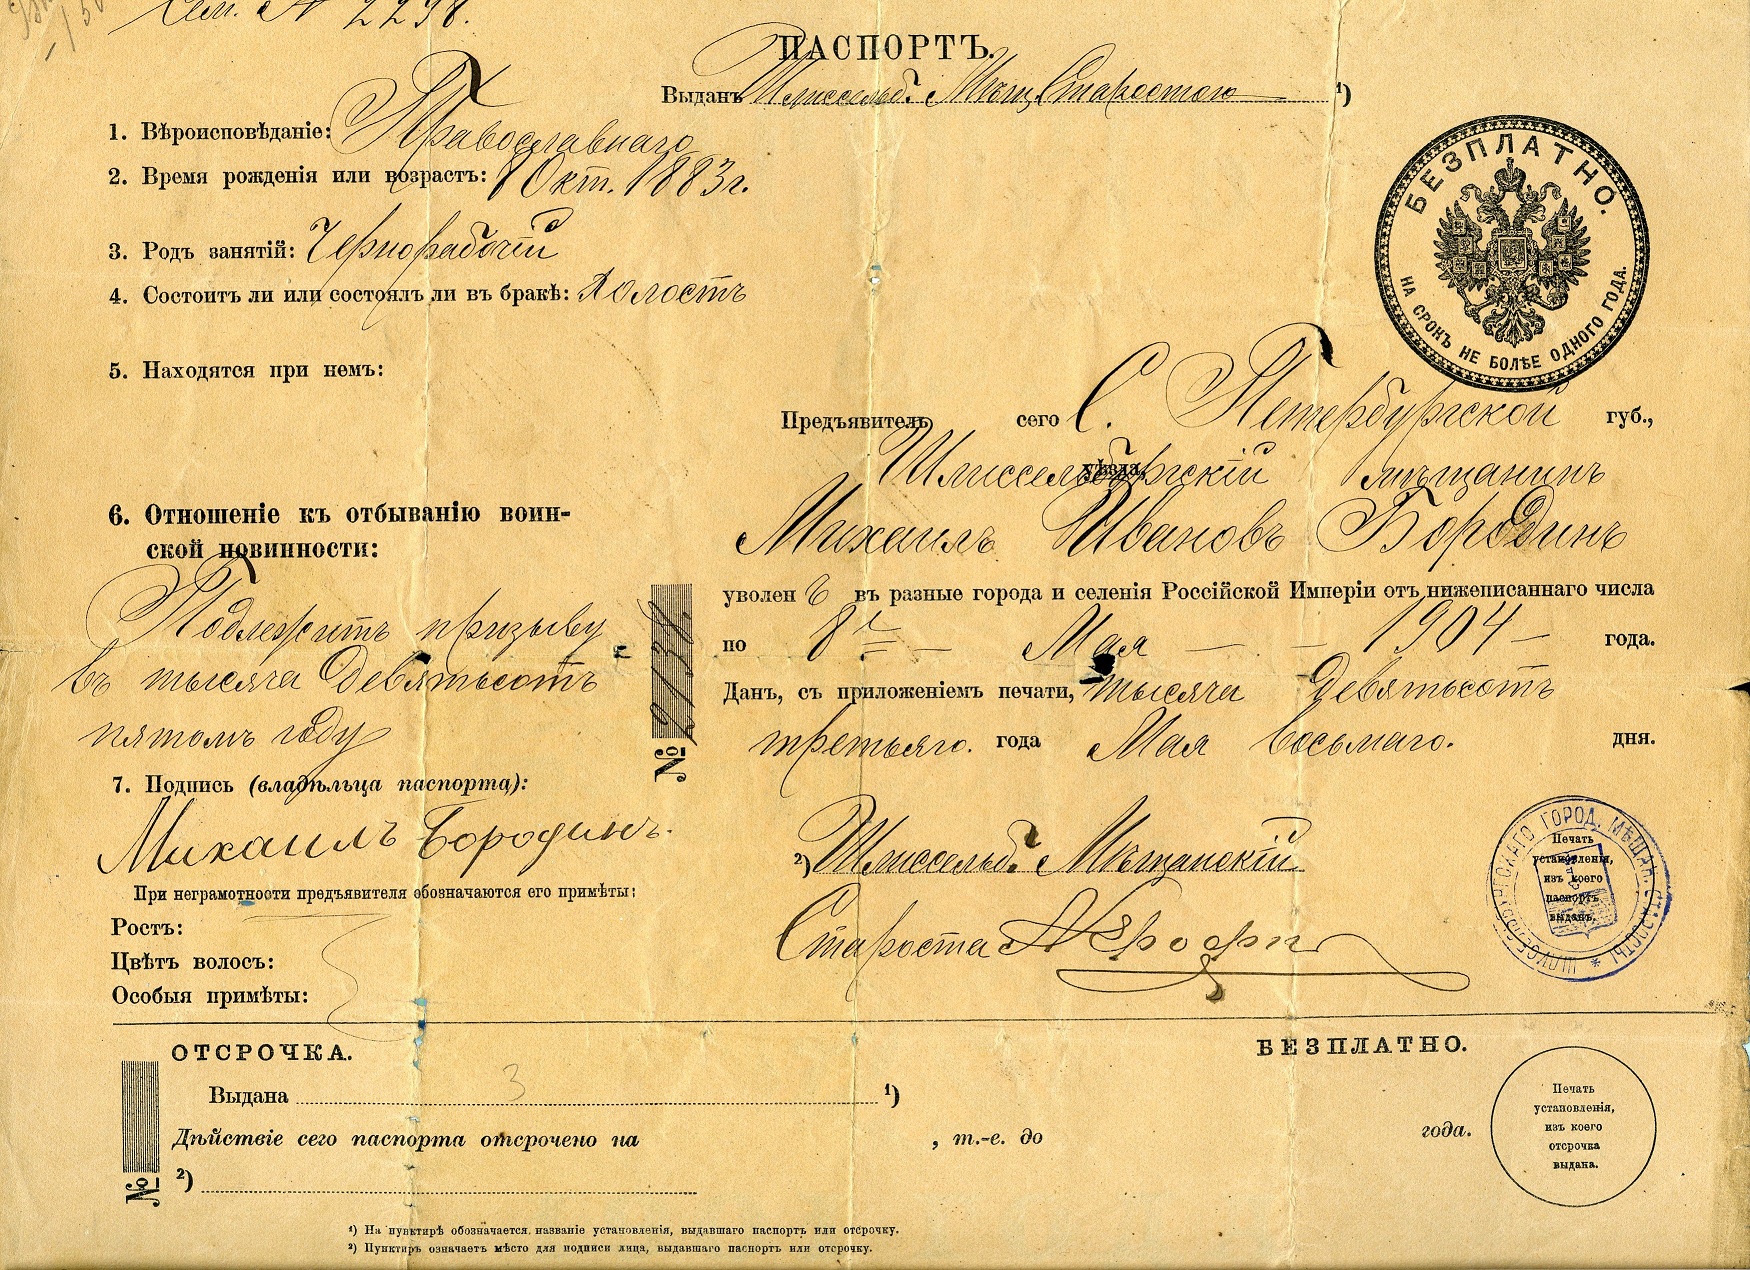 Сем. № 2298.
ПАСПОРТЪ.
Выданъ Шлиссельб. Мѣщ. Старостою ¹)
1. Вѣроисповѣданіе: Православнаго
2. Время рожденія или возрастъ: 8 Окт. 1883 г.
3. Родъ занятій: Чернорабочій
4. Состоитъ ли или состоялъ ли въ бракѣ: Холостъ
5. Находятся при немъ:
БЕЗПЛАТНО.
НА СРОКЪ НЕ БОЛѢЕ ОДНОГО ГОДА.
Предъявитель сего С. Петербургской губ.,
уѣзда, Шлиссельбургскій мѣщанинъ
Михаилъ Ивановъ Бородинъ
уволенъ въ разные города и селенія Россійской Имперіи отъ нижеписаннаго числа
по 8е Мая 1904 года.
Данъ, съ приложеніемъ печати, тысяча девятьсотъ
третьяго. года Мая восьмаго. дня.
6. Отношеніе къ отбыванію воин-
ской повинности:
Подлежитъ призыву
въ тысяча девятьсотъ
пятомъ году
№
7. Подпись (владѣльца паспорта):
Михаилъ Бородинъ.
При неграмотности предъявителя обозначаются его примѣты:
Ростъ:
Цвѣтъ волосъ:
Особыя примѣты:
²) Шлиссельб. Мѣщанскій
Староста
Печать
установленія,
изъ коего
паспортъ
выданъ.
ОТСРОЧКА.
БЕЗПЛАТНО.
№
Выдана ¹)
Дѣйствіе сего паспорта отсрочено на , т.-е. до года.
²)
Печать
установленія,
изъ коего
отсрочка
выдана.
¹) На пунктирѣ обозначается названіе установленія, выдавшаго паспортъ или отсрочку.
²) Пунктиръ означаетъ мѣсто для подписи лица, выдавшаго паспортъ или отсрочку.